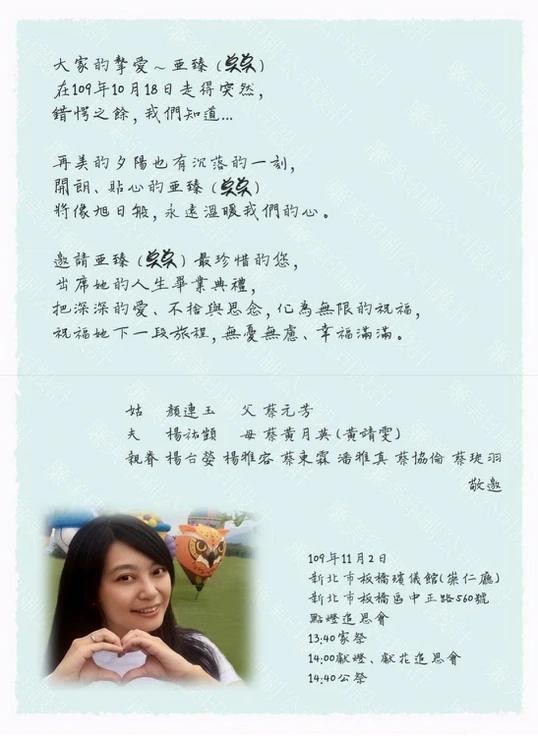 大家的摯愛～亚臻(臭臭)
在109年10月18日走得突然,
錯愕之餘,我們知道...
再美的夕陽也有沉落的一刻,
開朗、貼心的亚臻(臭臭)
將像旭日般,永遠溫暖我們的心。
邀請亚臻(臭臭)最珍惜的您,
出席她的人生畢業典禮,
把深深的愛、不捨與思念,化為無限的祝福,
祝福她下一段旅程,無憂無慮、幸福滿滿。
姑 顏連玉 父 蔡元芳
夫 楊祐顗 母 蔡黃月英(黃靖雯)
親眷 楊台螢 楊雅容 蔡東霖 潘雅真 蔡協倫 蔡琁羽
敬邀
109年11月2日
新北市板橋殯儀館(崇仁廳)
新北市板橋區中正路560號
點燈追思會
13:40家祭
14:00獻燈、獻花追思會
14:40公祭